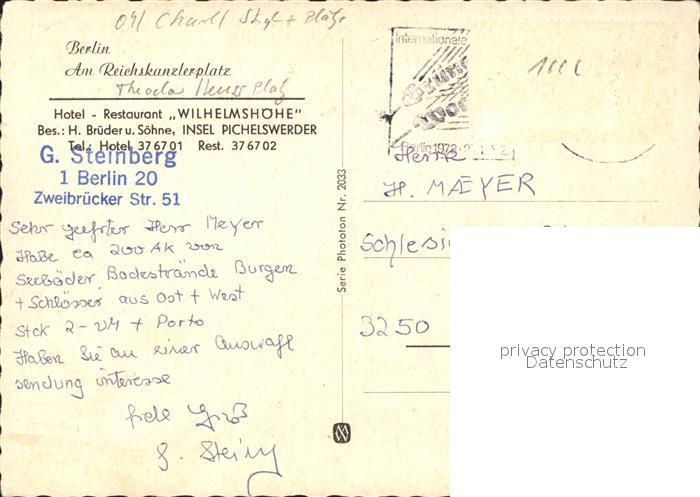 041 Charl Stgl + Plätze
Berlin
Am Reichskanzlerplatz
Theodor Heuss Platz
Hotel - Restaurant „WILHELMSHÖHE"
Bes.: H. Brüder u. Söhne, INSEL PICHELSWERDER
Tel.: Hotel 37 67 01 Rest. 37 67 02
G. Steinberg
1 Berlin 20
Zweibrücker Str. 51
Sehr geehrter Herr Meyer
Habe ca 200 AK von
Seebäder Badestrände Burgen
+ Schlösser aus Ost + West
Stck 2-DM + Porto
Haben Sie an einer Auswahl
sendung interesse
Gruß
G. Steinbg
Serie Phototon Nr. 2033
internationale
Grüne
Woche
Berlin 1978
Herrn
H. MÆYER
Schlesi
3250
privacy protection
Datenschutz